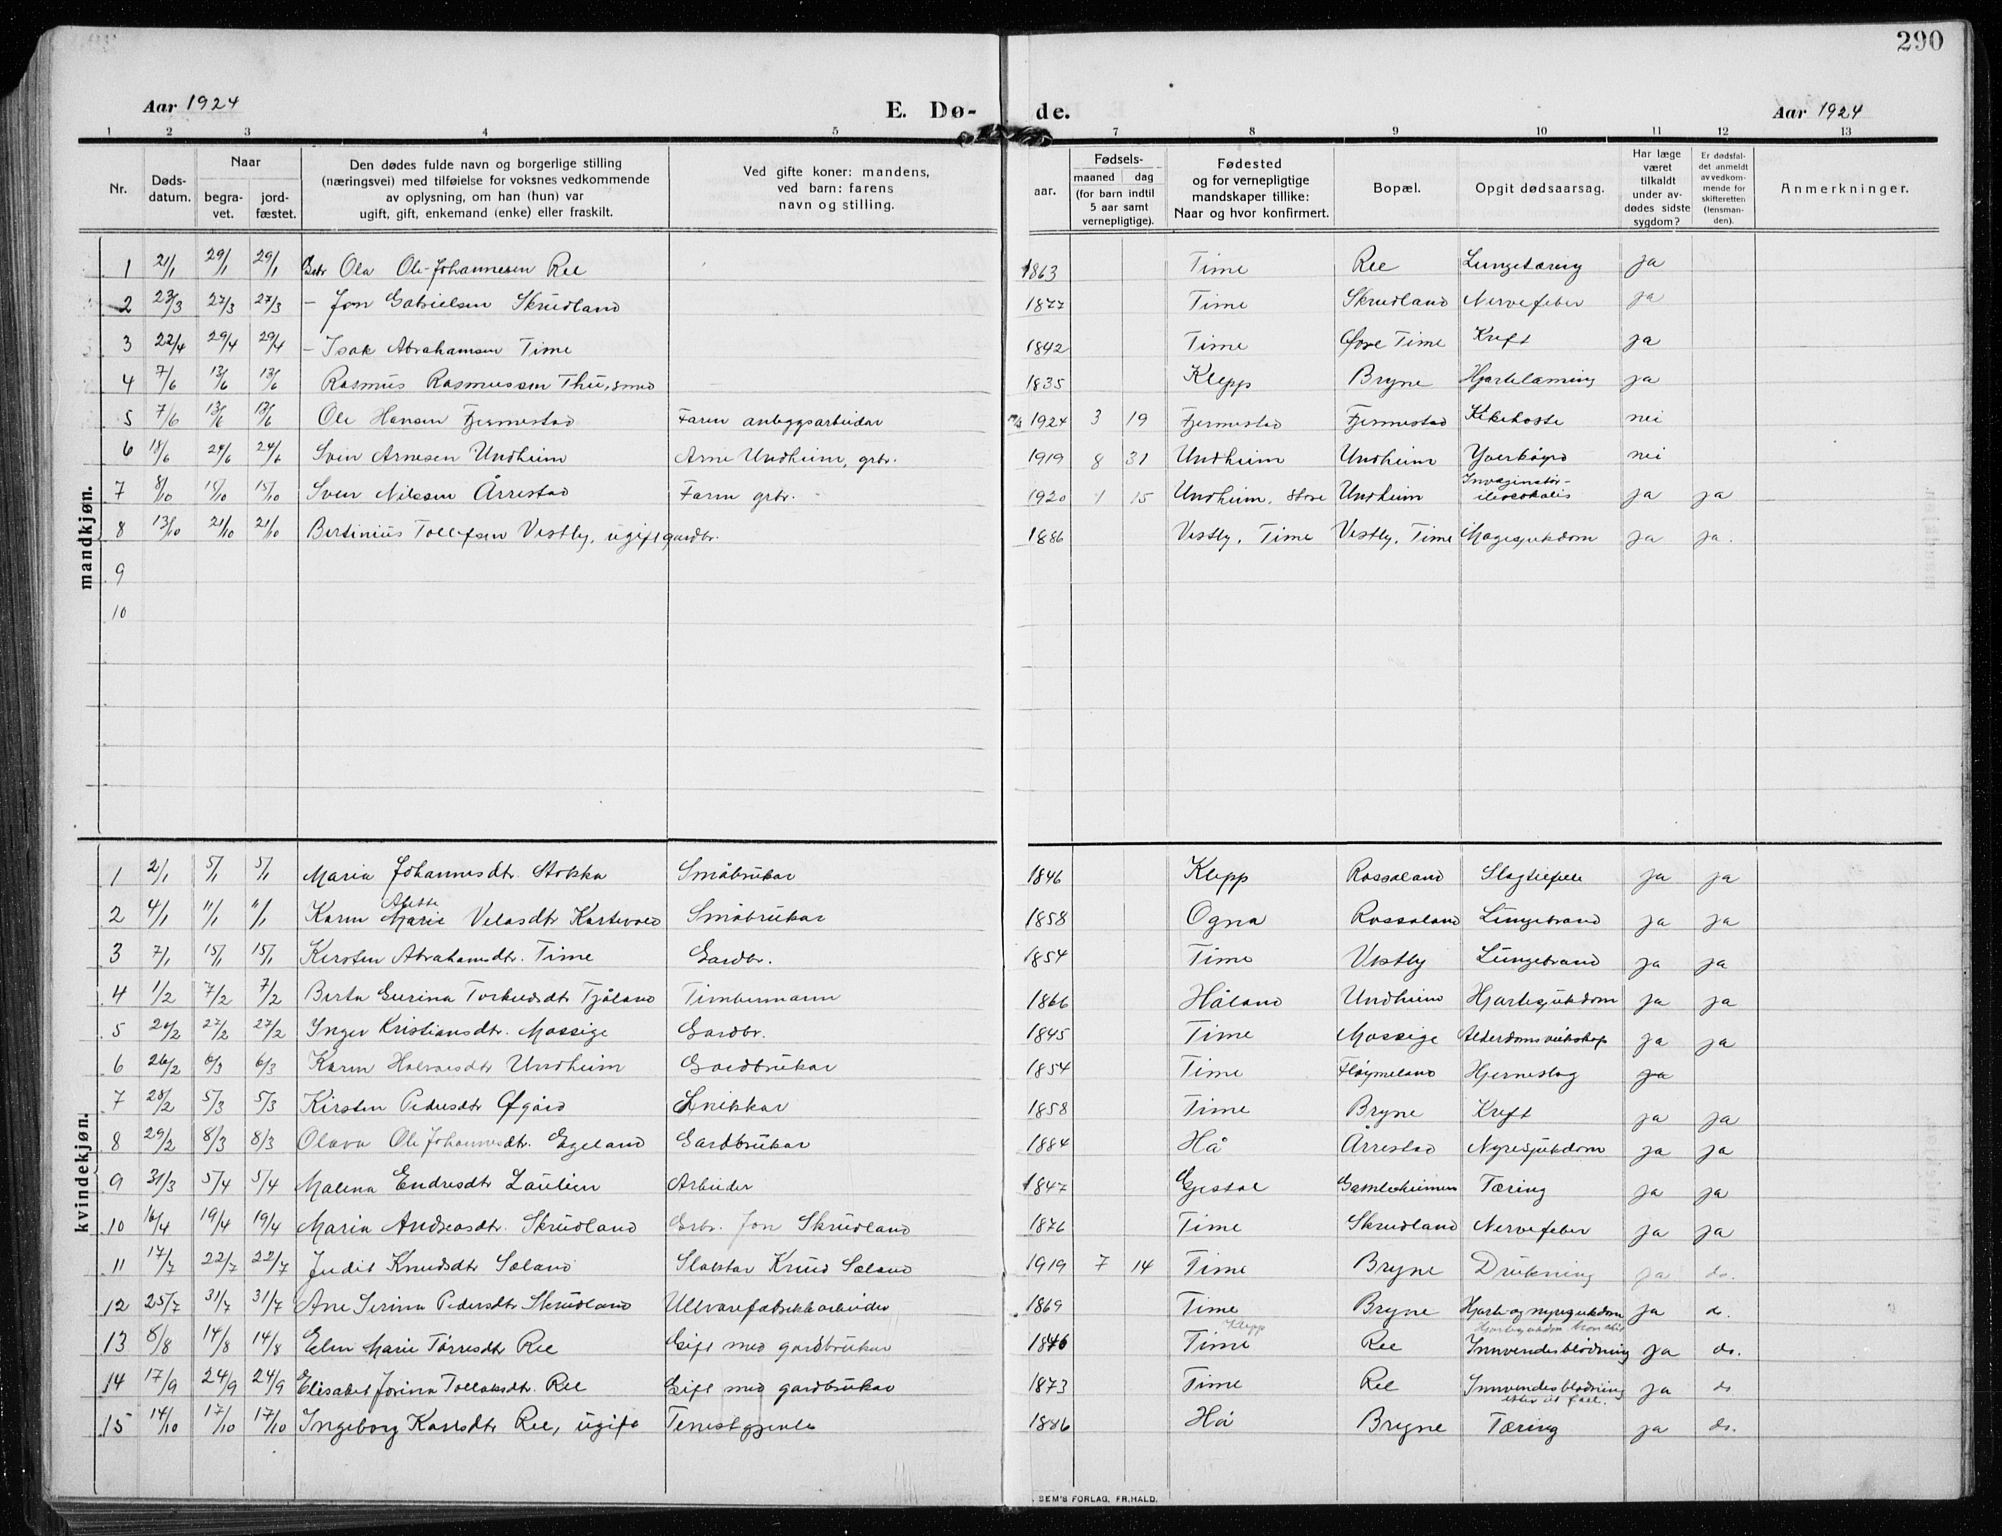 290
Aar 1924 E. Dø- de. Aar 1924
1 2 3 4 5 7 8 9 10 11 12 13
Nr. Døds-datum. Naar begra-vet. jord-fæstet. Den dødes fulde navn og borgerlige stilling (næringsvei) med tilføielse for voksnes vedkommende av oplysning, om han (hun) var ugift, gift, enkemand (enke) eller fraskilt. Ved gifte koner: mandens, ved barn: farens navn og stilling. aar. Fødsels- maaned dag (for barn indtil 5 aar samt vernepligtige). Fødested og for vernepligtige mandskaper tillike: Naar og hvor konfirmert. Bopæl. Opgit dødsaarsag. Har læge været tilkaldt under av-dødes sidste sygdom? Er dødsfal-det anmeldt av vedkom-mende for skifteretten (lensman-den). Anmerkninger.
mandkjøn.
1 21/1 29/1 29/1 Gbr Ola Ole-Johannesen Ree 1863 Time Ree Lungetæring ja
2 23/3 27/3 27/3 - Jon Gabrielsen Skrudland 1877 Time Skrudland Nervefeber ja
3 22/4 29/4 29/4 - Isak Abrahamsen Time 1842 Time Øvre Time Kreft ja
4 7/6 13/6 13/6 Rasmus Rasmussen Thu, smed 1835 Klepp Bryne Hjartelaming ja
5 7/6 13/6 13/6 Ole Hansen Fjermestad Faren anleggsarbeidar 1924 3 19 Fjermestad Fjermestad Kikehoste nei
6 18/6 24/6 24/6 Sven Arnesen Undheim Arne Undheim, grbr. 1919 8 31 Undheim Undheim nei
7 8/10 15/10 15/10 Sven Nilssen Årrestad Faren grbr. 1920 1 15 Undheim, Store Undheim Invaginatio-ileocokalis ja ja
8 13/10 21/10 21/10 Bertinius Tollefsen Vestly, ugift gardbr. 1886 Vestly, Time Vestly, Time Magesjukdom ja ja.
9
10
kvindekjøn.
1 2/1 5/1 5/1 Maria Johannesdtr. Stokka Småbrukar 1846 Klepp Rossaland Slagtilfelle ja ja
2 4/1 11/1 11/1 Karen Alette Marie Velasdtr Kartevold Småbrukar 1858 Ogna Rossaland Lungebrand ja ja
3 7/1 15/1 15/1 Kirsten Abrahamsdtr. Time Gardbr. 1854 Time Vestly Lungebrand ja ja
4 1/2 7/2 7/2 Berta Gurina Torkelsdtr Tjåland Timbermann 1866 Håland Undheim Hjartesjukdom ja ja
5 20/2 27/2 27/2 Inger Kristiansdtr. Mossige Gardbr. 1845 Time Mossige Alderdomsveikskap ja ja
6 26/2 6/3 6/3 Karen Halvorsdtr Undheim Gardbrukar 1854 Time Fløymeland Hjerneslag ja
7 28/2 5/3 5/3 Kirsten Pedersdtr Øfgård Snikkar 1858 Time Bryne Kreft ja ja
8 29/2 8/3 8/3 Olava Ole Johannesdtr. Egeland Gardbrukar 1884 Hå Årrestad Nyresjukdom ja ja
9 31/3 5/4 5/4 Malena Endresdtr Laulien Arbeider 1847 Gjestal Gamleheimen Tæring ja ja
10 16/4 19/4 19/4 Maria Andreasdtr. Skrudland Grbr. Jon Skrudland 1876 Time Skrudland Nervefeber ja ja
11 17/7 22/7 22/7 Judit Knudsdtr Sæland Slaktar Knud Sæland 1919 7 14 Time Bryne Drukning ja do.
12 25/7 31/7 31/7 Ane Serina Pedersdtr Skrudland Ullvarefabrikkarbeider 1869 Time Bryne Hjarte og nyresjukdom ja do.
13 8/8 14/8 14/8 Elen Marie Tørresdtr Ree Gift med gardbrukar 1846 Klepp Time Ree Hjartesjukdom Innvendes blødning ja do.
14 17/9 24/9 24/9 Elisabet Jorina Tollaksdtr. Ree Gift med gardbrukar 1873 Time Ree Innvendes blødning etter eit fall. ja do
15 14/10 17/10 17/10 Ingeborg Karisdtr Ree, ugift Tenestgjente 1886 Hå Bryne Tæring ja do.
SEM'S FORLAG, FR.HALD.